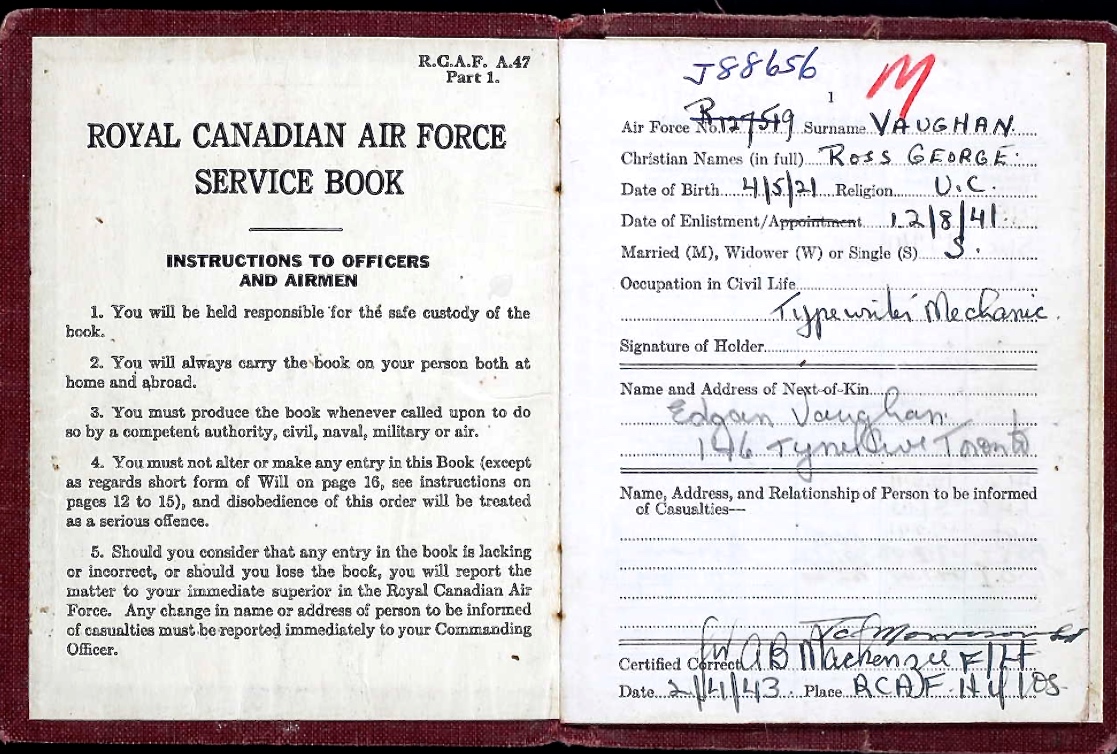 R.C.A.F. A.47
Part 1.
ROYAL CANADIAN AIR FORCE
SERVICE BOOK
INSTRUCTIONS TO OFFICERS
AND AIRMEN
1. You will be held responsible for the safe custody of the
book.
2. You will always carry the book on your person both at
home and abroad.
3. You must produce the book whenever called upon to do
so by a competent authority, civil, naval, military or air.
4. You must not alter or make any entry in this Book (except
as regards short form of Will on page 16, see instructions on
pages 12 to 15), and disobedience of this order will be treated
as a serious offence.
5. Should you consider that any entry in the book is lacking
or incorrect, or should you lose the book, you will report the
matter to your immediate superior in the Royal Canadian Air
Force. Any change in name or address of person to be informed
of casualties must be reported immediately to your Commanding
Officer.
J88656
M
1
Air Force No. R127519 Surname VAUGHAN.
Christian Names (in full) ROSS GEORGE.
Date of Birth 4/5/21 Religion U.C.
Date of Enlistment/Appointment 12/8/41.
Married (M), Widower (W) or Single (S) S.
Occupation in Civil Life
Typewriter Mechanic.
Signature of Holder
Name and Address of Next-of-Kin
Edgar Vaughan.
146 Toronto
Name, Address, and Relationship of Person to be informed
of Casualties—
Certified Correct AB Mackenzie F/Lt
Date 2/4/43. Place RCAF. H.Q